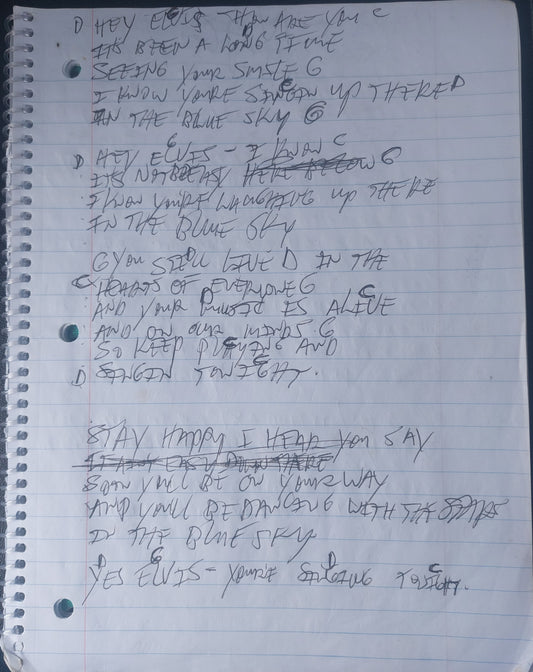 D HEY ELVIS G HOW ARE YOU C
ITS BEEN A LONG TIME D
SEEING YOUR SMILE G
I KNOW YOURE SINGIN UP THERE C D
IN THE BLUE SKY G
D HEY ELVES - I KNOW G C
ITS NOT EASY HERE BELOW G
I KNOW YOURE LAUGHING UP THERE
IN THE BLUE SKY
G YOU STILL LIVE D IN THE
C HEARTS OF EVERYONE G
AND YOUR MUSIC IS ALIVE D C
AND ON OUR MINDS. G
SO KEEP PLAYING AND
D SINGIN TONIGHT. C
STAY HAPPY I HEAR YOU SAY
IT AINT EASY DOWN THERE
SOON YOULL BE ON YOUR WAY
AND YOULL BE DANCING WITH THE STARS
IN THE BLUE SKY
D G D C
YES ELVIS - YOURE SINGING TONIGHT.